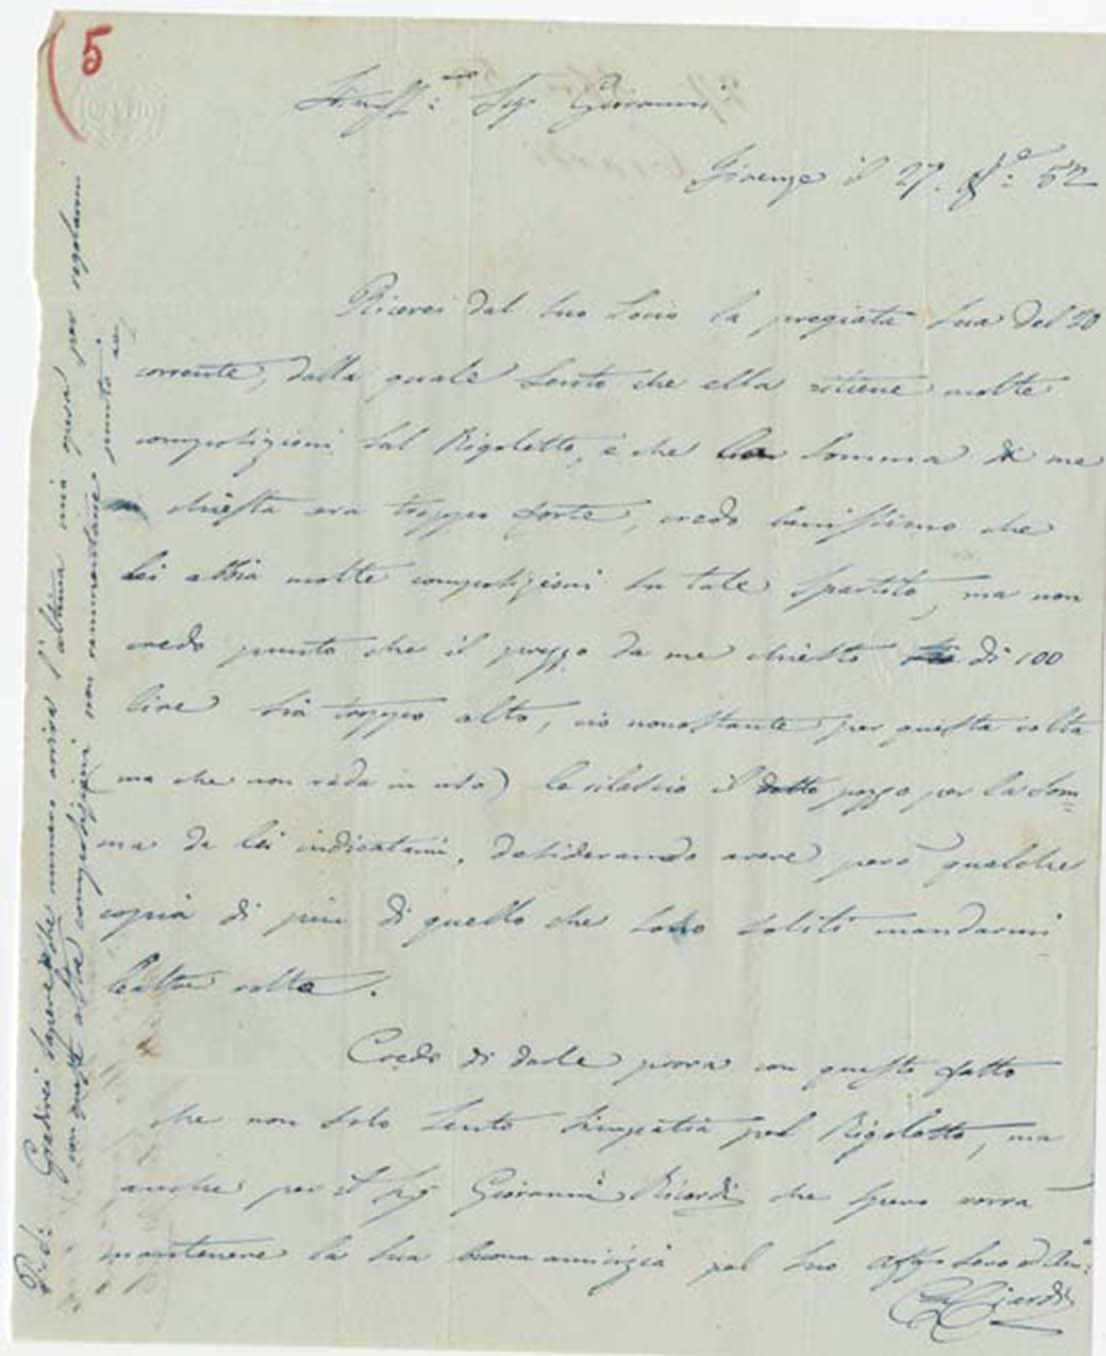 5
Stimatss:mo Sigr Giovanni
Firenze il 27. 52
Ricevei dal suo Socio la pregiata sua del 20
corrente, dalla quale sento che ella ritiene molte
composizioni sul Rigoletto, e che la somma di me
chiesta era troppo forte, credo benissimo che
Lei abbia molte composizioni su tale spartito, ma non
credo punto che il prezzo da me chiesto di 100
lire sia troppo alto, ciò nonostante per questa volta
(ma che non vada in uso) le rilascio il detto pezzo per la som=
ma da lei indicatami, desiderando avere però qualche
copia di più di quello che sono soliti mandarmi
le altre volte.
Credo di darle prova con questo fatto
che non solo sento simpatia pel Rigoletto, ma
anche per il Sig Giovanni Ricordi che spero vorrà
mantenere la sua buona amicizia pel suo Affmo Servo ed Am:
Ciardi
P.S: Gradirei sapere che numero arriva l'ultima mia opera per regolarmi
con queste altre composizioni non rammentandomene punto